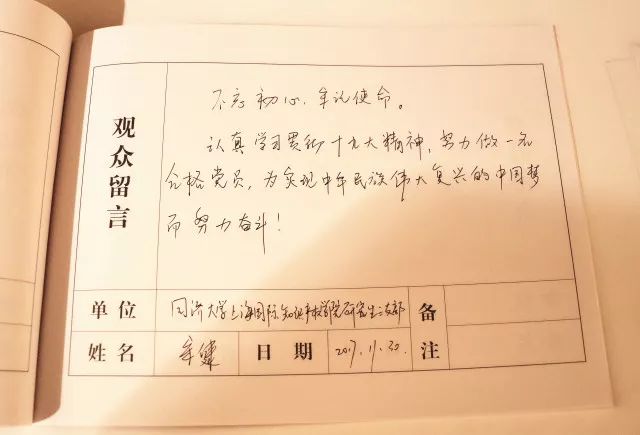 观众留言
不忘初心、牢记使命。
认真学习贯彻十九大精神，努力做一名
合格党员，为实现中华民族伟大复兴的中国梦
而努力奋斗！
单位 同济大学上海国际知识产权学院研究生二支部 备注
姓名 牟健 日期 2017.11.30.